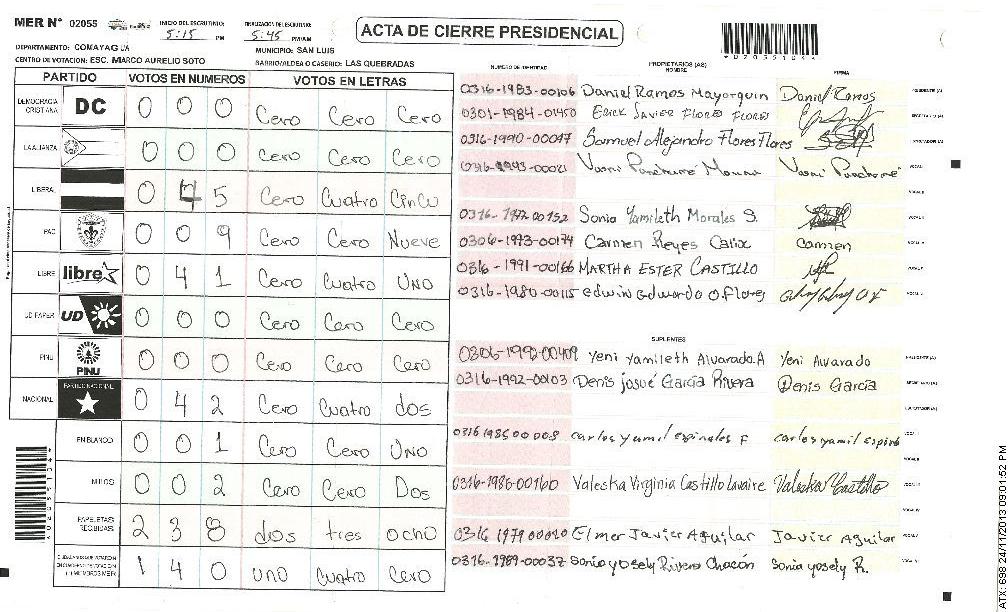 MER N° 02055
INICIO DEL ESCRUTINIO: 5:15 PM
FINALIZACION DEL ESCRUTINIO: 5:45 PM/AM
ACTA DE CIERRE PRESIDENCIAL
DEPARTAMENTO: COMAYAGUA
MUNICIPIO: SAN LUIS
CENTRO DE VOTACION: ESC. MARCO AURELIO SOTO
BARRIO/ALDEA O CASERIO: LAS QUEBRADAS
PARTIDO VOTOS EN NUMEROS VOTOS EN LETRAS
DEMOCRACIA CRISTIANA DC 0 0 0 Cero Cero Cero
LA ALIANZA 0 0 0 Cero Cero Cero
LIBERAL 0 4 5 Cero Cuatro Cinco
PAC 0 0 9 Cero Cero Nueve
LIBRE libre 0 4 1 Cero Cuatro Uno
UD FAPER UD 0 0 0 Cero Cero Cero
PINU PINU 0 0 0 Cero Cero Cero
NACIONAL PARTIDO NACIONAL 0 4 2 Cero Cuatro dos
EN BLANCO 0 0 1 Cero Cero Uno
NULOS 0 0 2 Cero Cero Dos
PAPELETAS RECIBIDAS 2 3 8 dos tres ocho
1 4 0 uno cuatro Cero
NUMERO DE IDENTIDAD PROPIETARIOS (AS) NOMBRE FIRMA
0316-1983-00106 Daniel Ramos Mayorquin Daniel Ramos PRESIDENTE (A)
0301-1984-01450 Erick Javier Flores Flores SECRETARIO (A)
0316-1990-00047 Samuel Alejandro Flores Flores ESCRUTADOR (A)
0316-1943-00021
0316-1972 00152 Sonia Yamileth Morales S.
0306-1993-00174 Carmen Reyes Calix Carmen
0316-1991-00166 MARTHA ESTER CASTILLO
0316-1980-00115 edwin edwardo O. flores
SUPLENTES
0306-1992-00409 Yeni Yamileth Alvarado. A Yeni Alvarado
0316-1992-00103 Denis josué García Rivera Denis García
carlos yamil espinales F carlos yamil
0316-1986-00160 Valeska Virginia Castillo Lavaire Valeska Castillo
0316 1979 00020 Elmer Javier Aguilar Javier Aguilar
0316-1989-00037 Sonia yosely Rivera Chacón Sonia yosely R.
ATX: 698 24/11/2013 09:01:52 PM